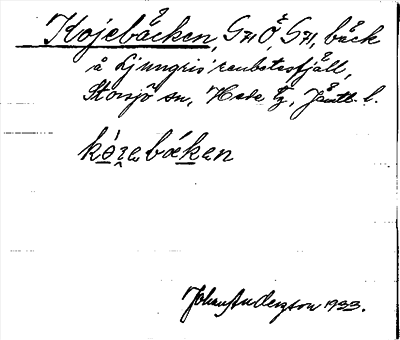 Kojebäcken, G71Ö, G71, bäck
å Ljungris' renbetesfjäll,
Storsjö sn, Hede tg, Jämtl. l.
kòjebäken
Johan Anderzson 1933.